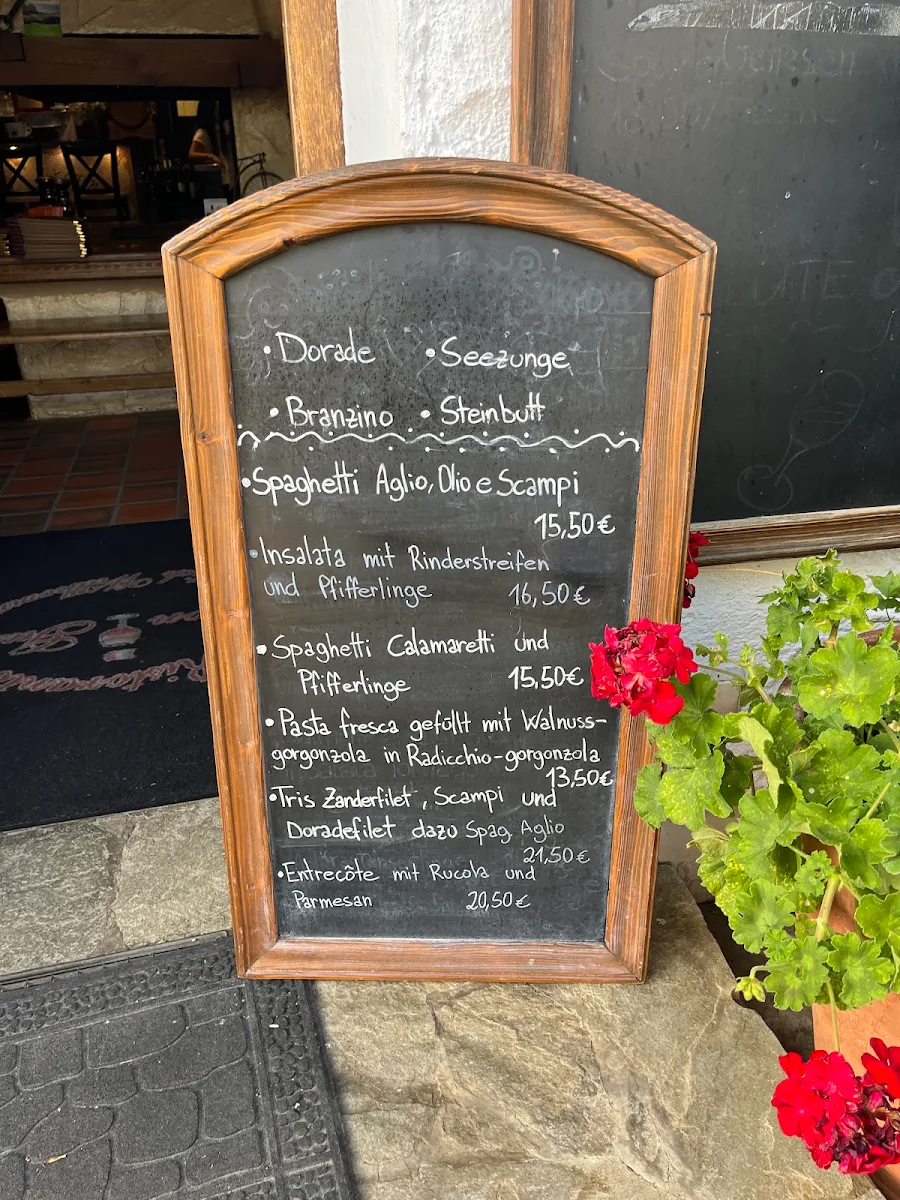 • Dorade • Seezunge
• Branzino • Steinbutt
• Spaghetti Aglio, Olio e Scampi
15,50€
• Insalata mit Rinderstreifen
und Pfifferlinge 16,50€
• Spaghetti Calamaretti und
Pfifferlinge 15,50€
• Pasta fresca gefüllt mit Walnuss-
gorgonzola in Radicchio-gorgonzola
13,50€
• Tris Zanderfilet, Scampi und
Doradefilet dazu Spag. Aglio
21,50€
• Entrecôte mit Rucola und
Parmesan 20,50€
Ristorante